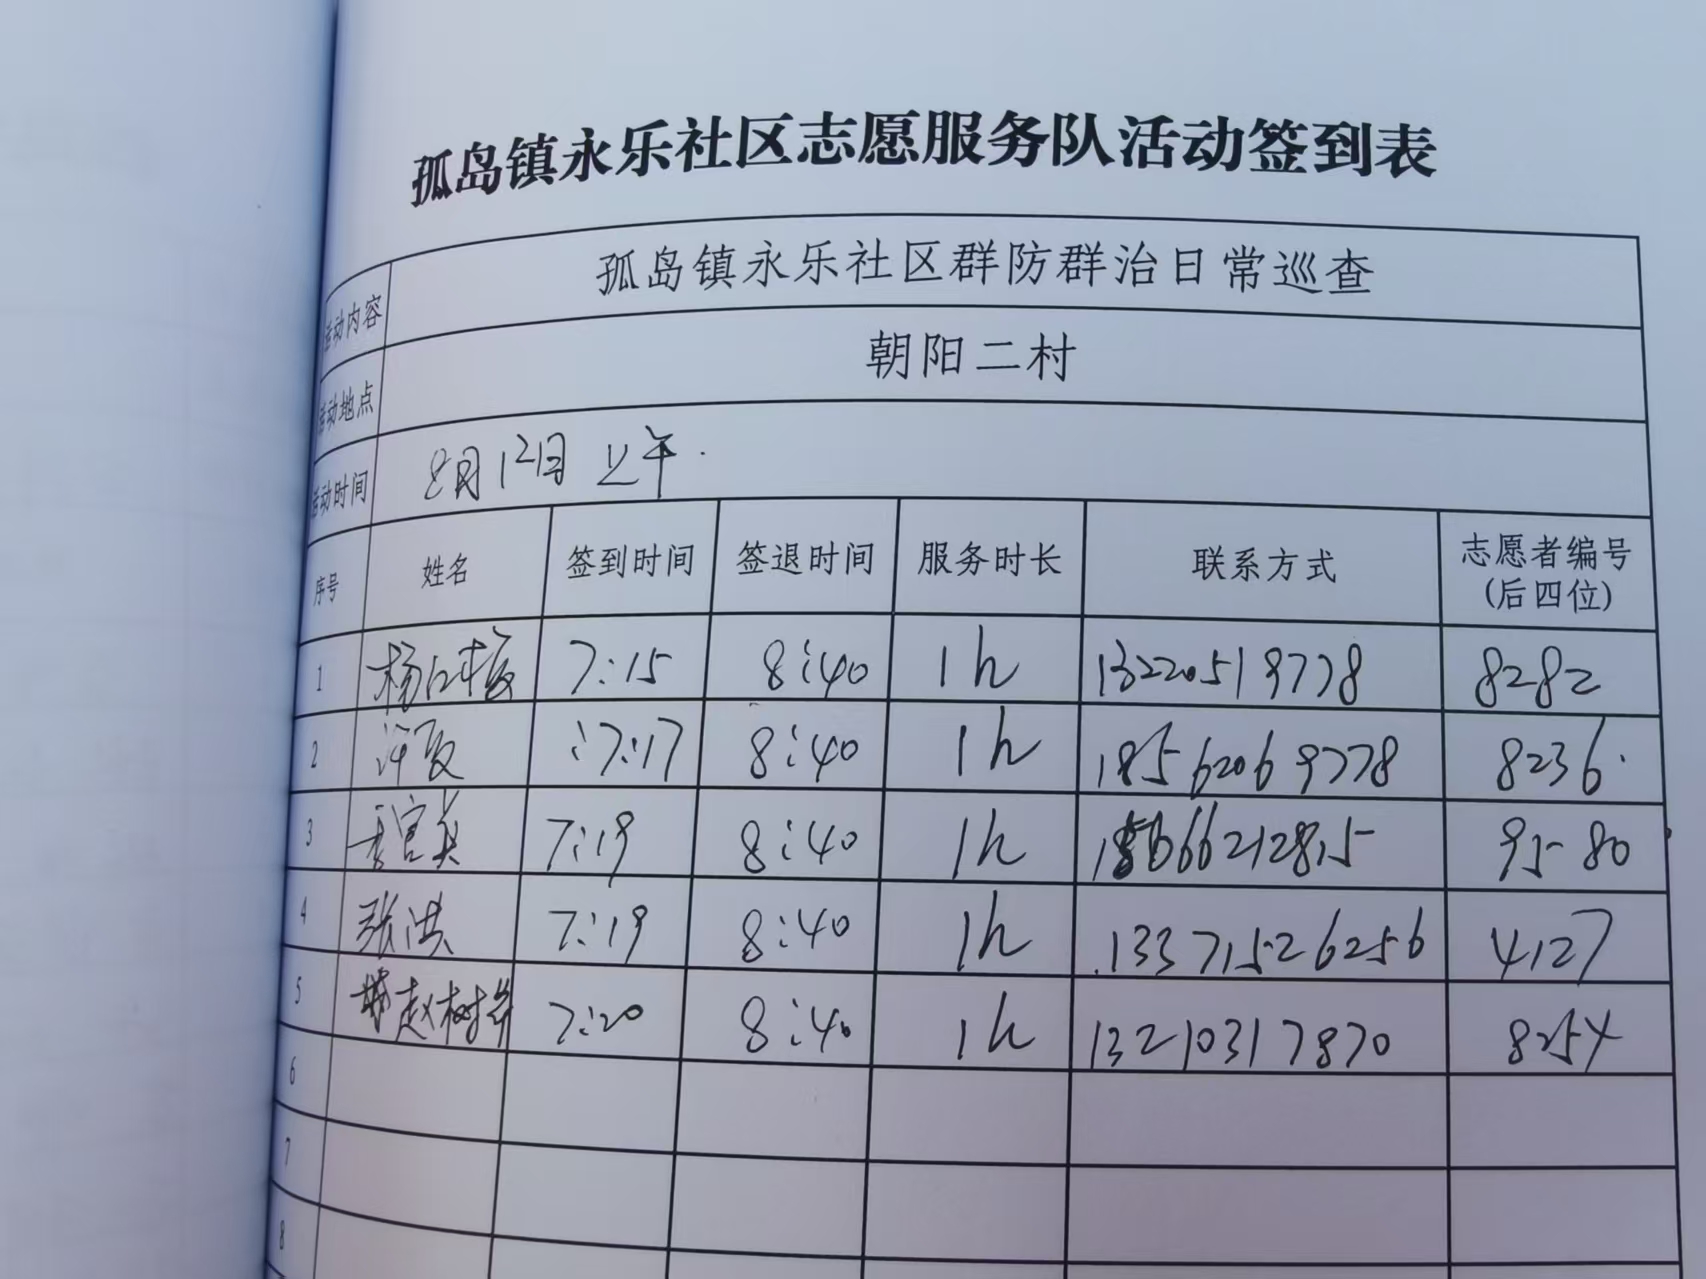 孤岛镇永乐社区志愿服务队活动签到表
活动内容 孤岛镇永乐社区群防群治日常巡查
活动地点 朝阳二村
活动时间 8月12日 上午.
序号 姓名 签到时间 签退时间 服务时长 联系方式 志愿者编号
(后四位)
1 7:15 8:40 1h 13220519778 8282
2 :7:17 8:40 1h 18562069778 8236.
3 7:19 8:40 1h 95-80
4 张洪 7:19 8:40 1h .13371526256 4127
5 赵树 7:20 8:40 1h 13210317870 8254
6
7
8